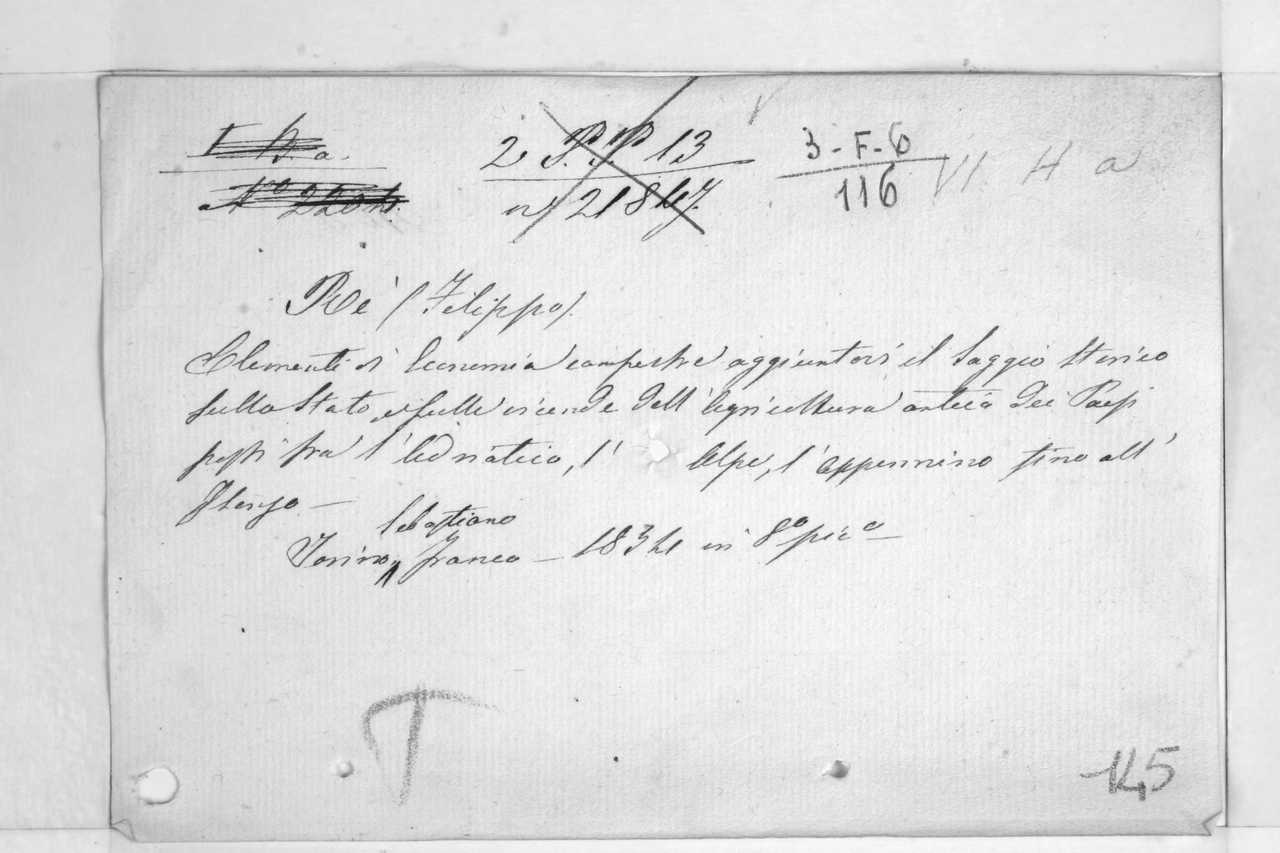 2. P. P. 13
n) 21847.
3-F-6
116
VI H a
Re' (Filippo).
Elementi di Economia campestre aggiuntovi il Saggio Storico
sullo Stato, e sulle vicende dell' Agricoltura antica dei Paesi
posti fra l' Adriatico, l' Alpe, l' Appennino sino all'
Torino, Sebastiano Franco — 1834 in 8º picº
T
145